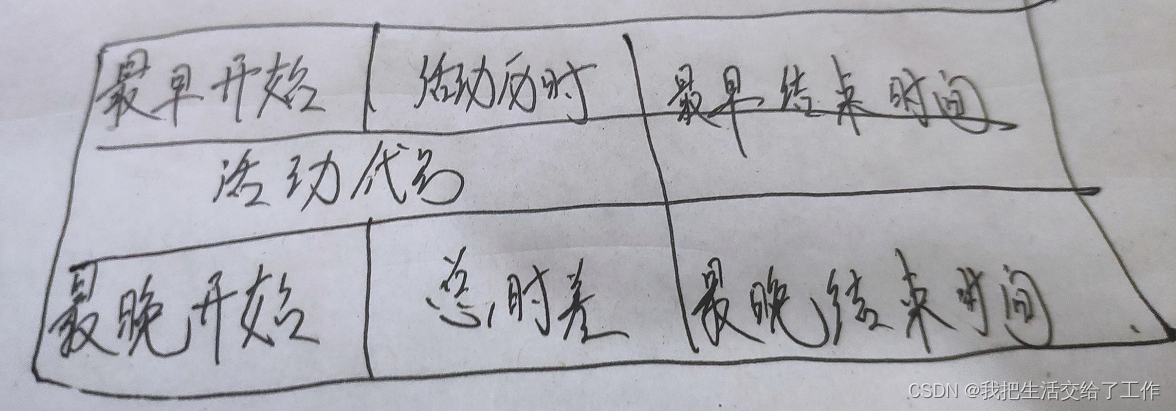 最早开始 活动历时 最早结束时间
活动代号
最晚开始 总时差 最晚结束时间
CSDN @我把生活交给了工作